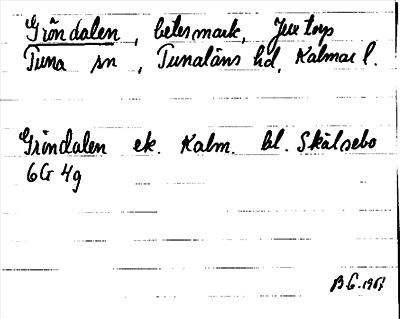 Gröndalen, betesmark, Jue torp
Tuna sn, Tunaläns hd, Kalmar l.
Gröndalen ek. Kalm. bl. Skälsebo
6G 4g
B.G. 1967